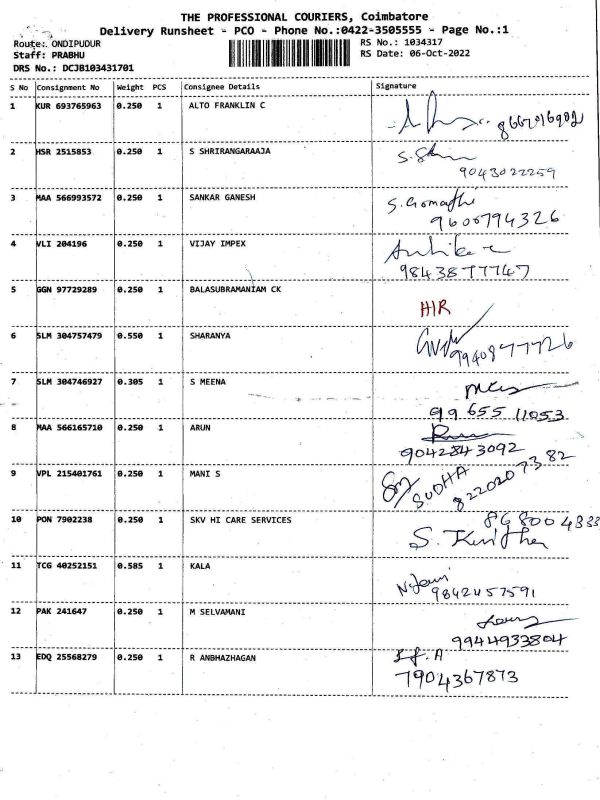 THE PROFESSIONAL COURIERS, Coimbatore
Delivery Runsheet - PCO - Phone No.:0422-3505555 - Page No.:1
Route: ONDIPUDUR RS No.: 1034317
Staff: PRABHU RS Date: 06-Oct-2022
DRS No.: DCJB103431701
S No Consignment No Weight PCS Consignee Details Signature
1 KUR 693765963 0.250 1 ALTO FRANKLIN C
2 HSR 2515853 0.250 1 S SHRIRANGARAAJA
9043022259
3 MAA 566993572 0.250 1 SANKAR GANESH S. Gomathi
9600794326
4 VLI 204196 0.250 1 VIJAY IMPEX
9843877747
5 GGN 97729289 0.250 1 BALASUBRAMANIAM CK
H/R
6 SLM 304757479 0.550 1 SHARANYA
9940877726
7 SLM 304746927 0.305 1 S MEENA
99655 11053
8 MAA 566165710 0.250 1 ARUN
9042843092
9 VPL 215401761 0.250 1 MANI S
SUDHA 8220207382
10 PON 7902238 0.250 1 SKV HI CARE SERVICES
11 TCG 40252151 0.585 1 KALA
9842457591
12 PAK 241647 0.250 1 M SELVAMANI
9944933804
13 EDQ 25568279 0.250 1 R ANBHAZHAGAN
7904367873